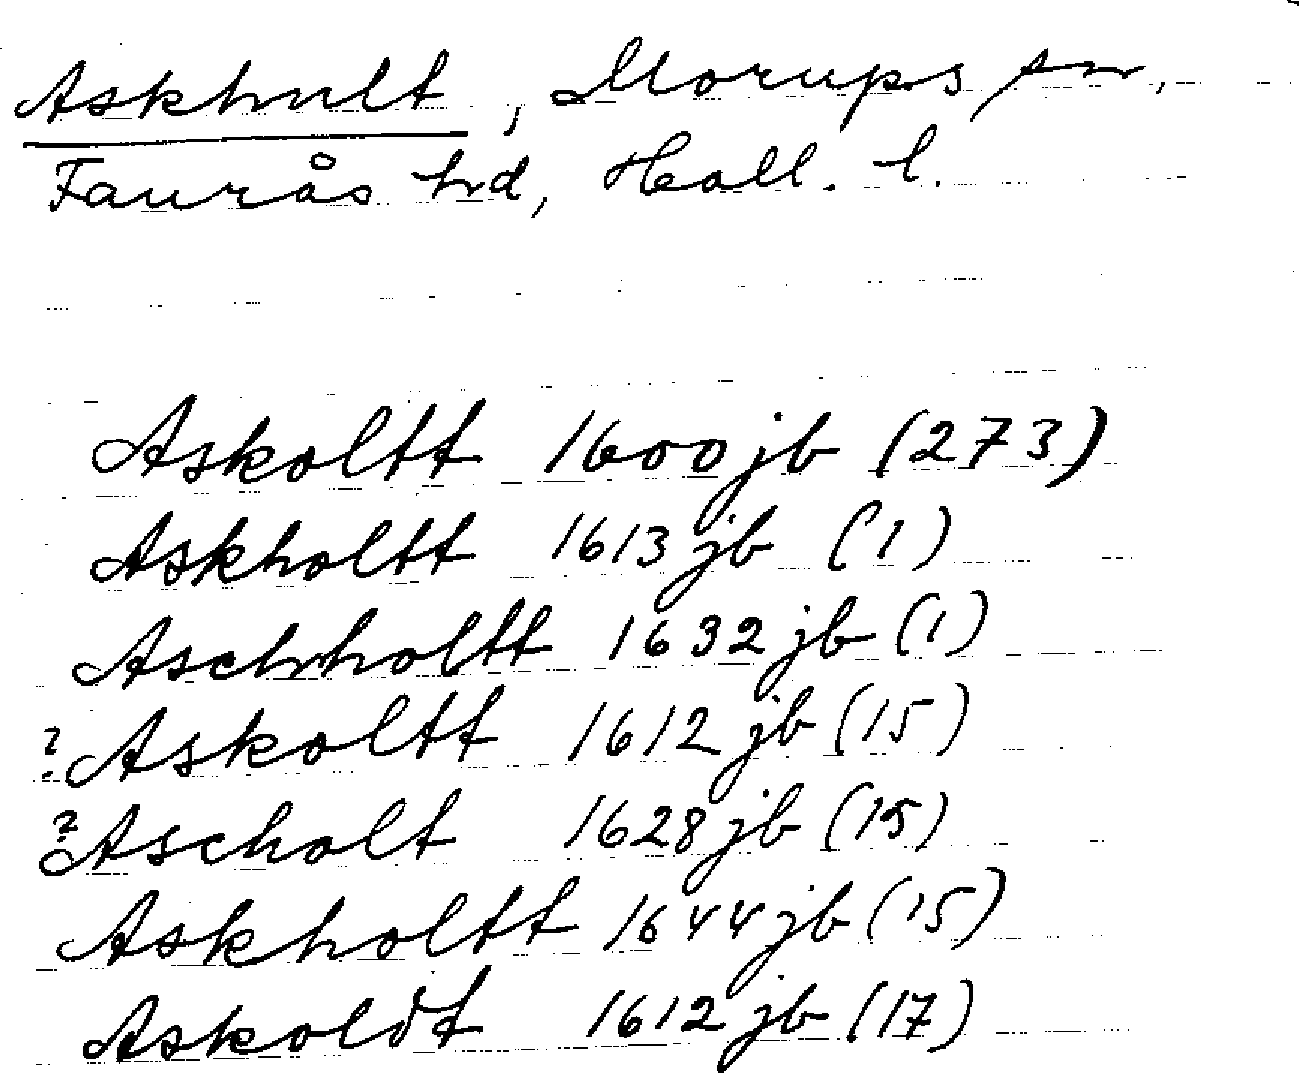 Askhult, Morups sn,
Faurås hrd, Hall. l.
Askoltt 1600 jb (273)
Askholtt 1613 jb (1)
Aschholtt 1632 jb (1)
? Askoltt 1612 jb (15)
? Ascholt 1628 jb (15)
Askholtt 1644 jb (15)
Askoldt 1612 jb (17)